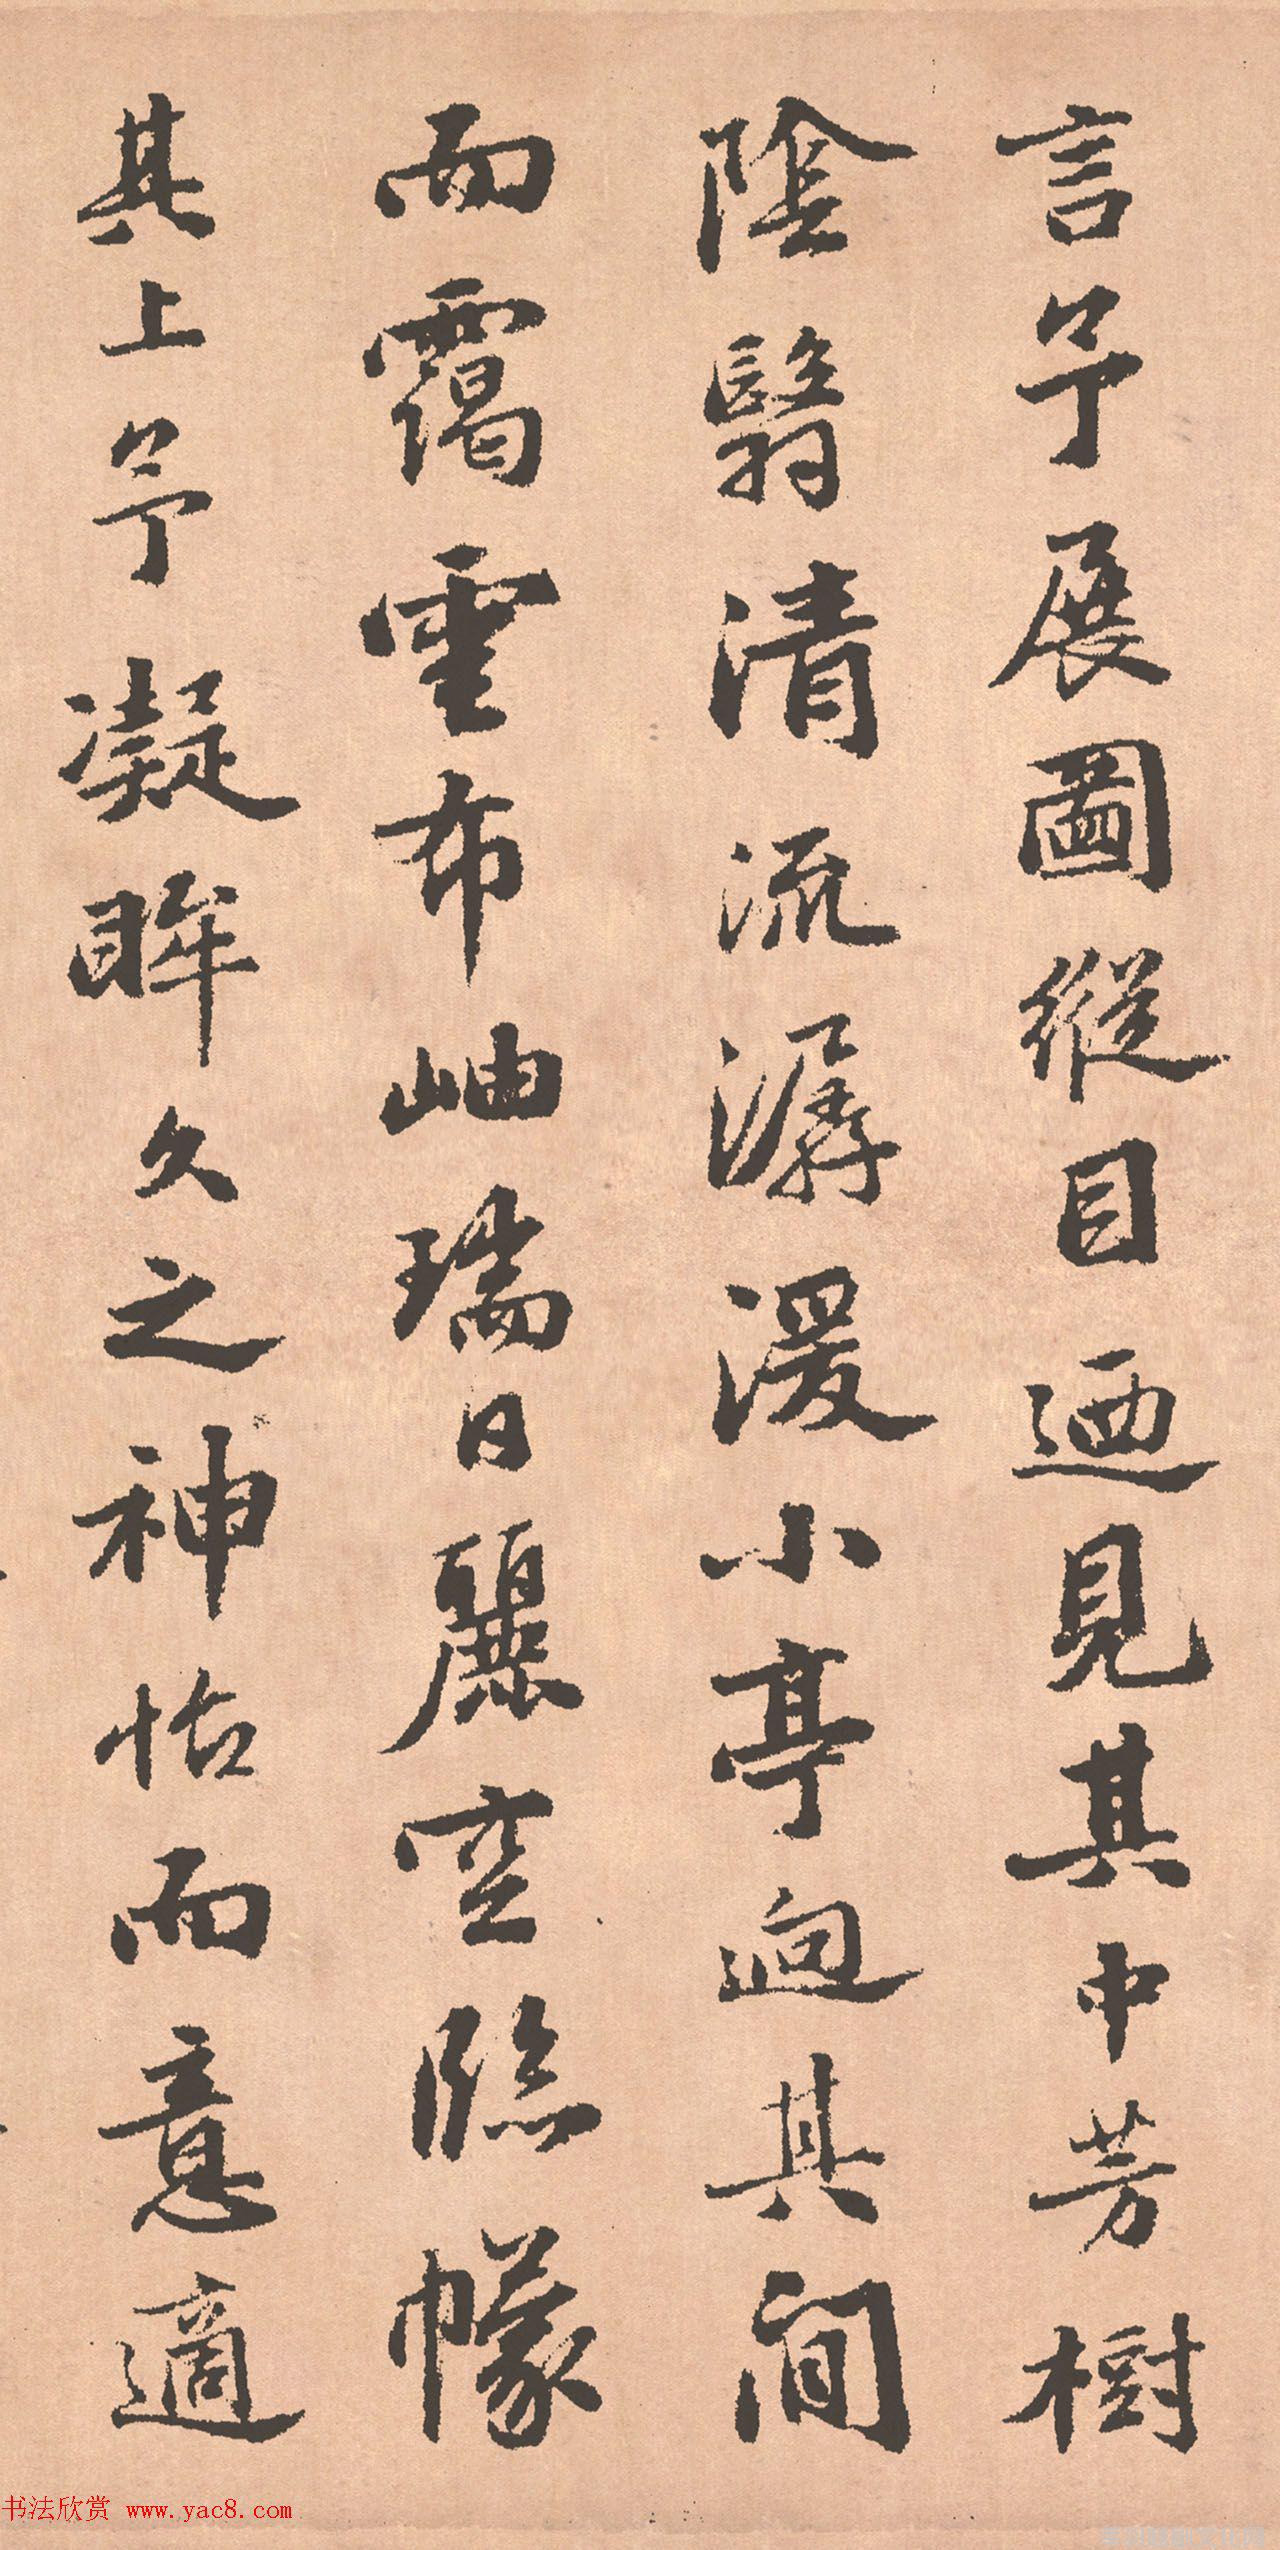 言予展圖縱目迺見其中芳樹
陰翳清流潺湲小亭迥其間
而靄雲布岫瑞日麗空臨幪
其上予凝眸久之神怡而意適
书法欣赏 www.yac8.com